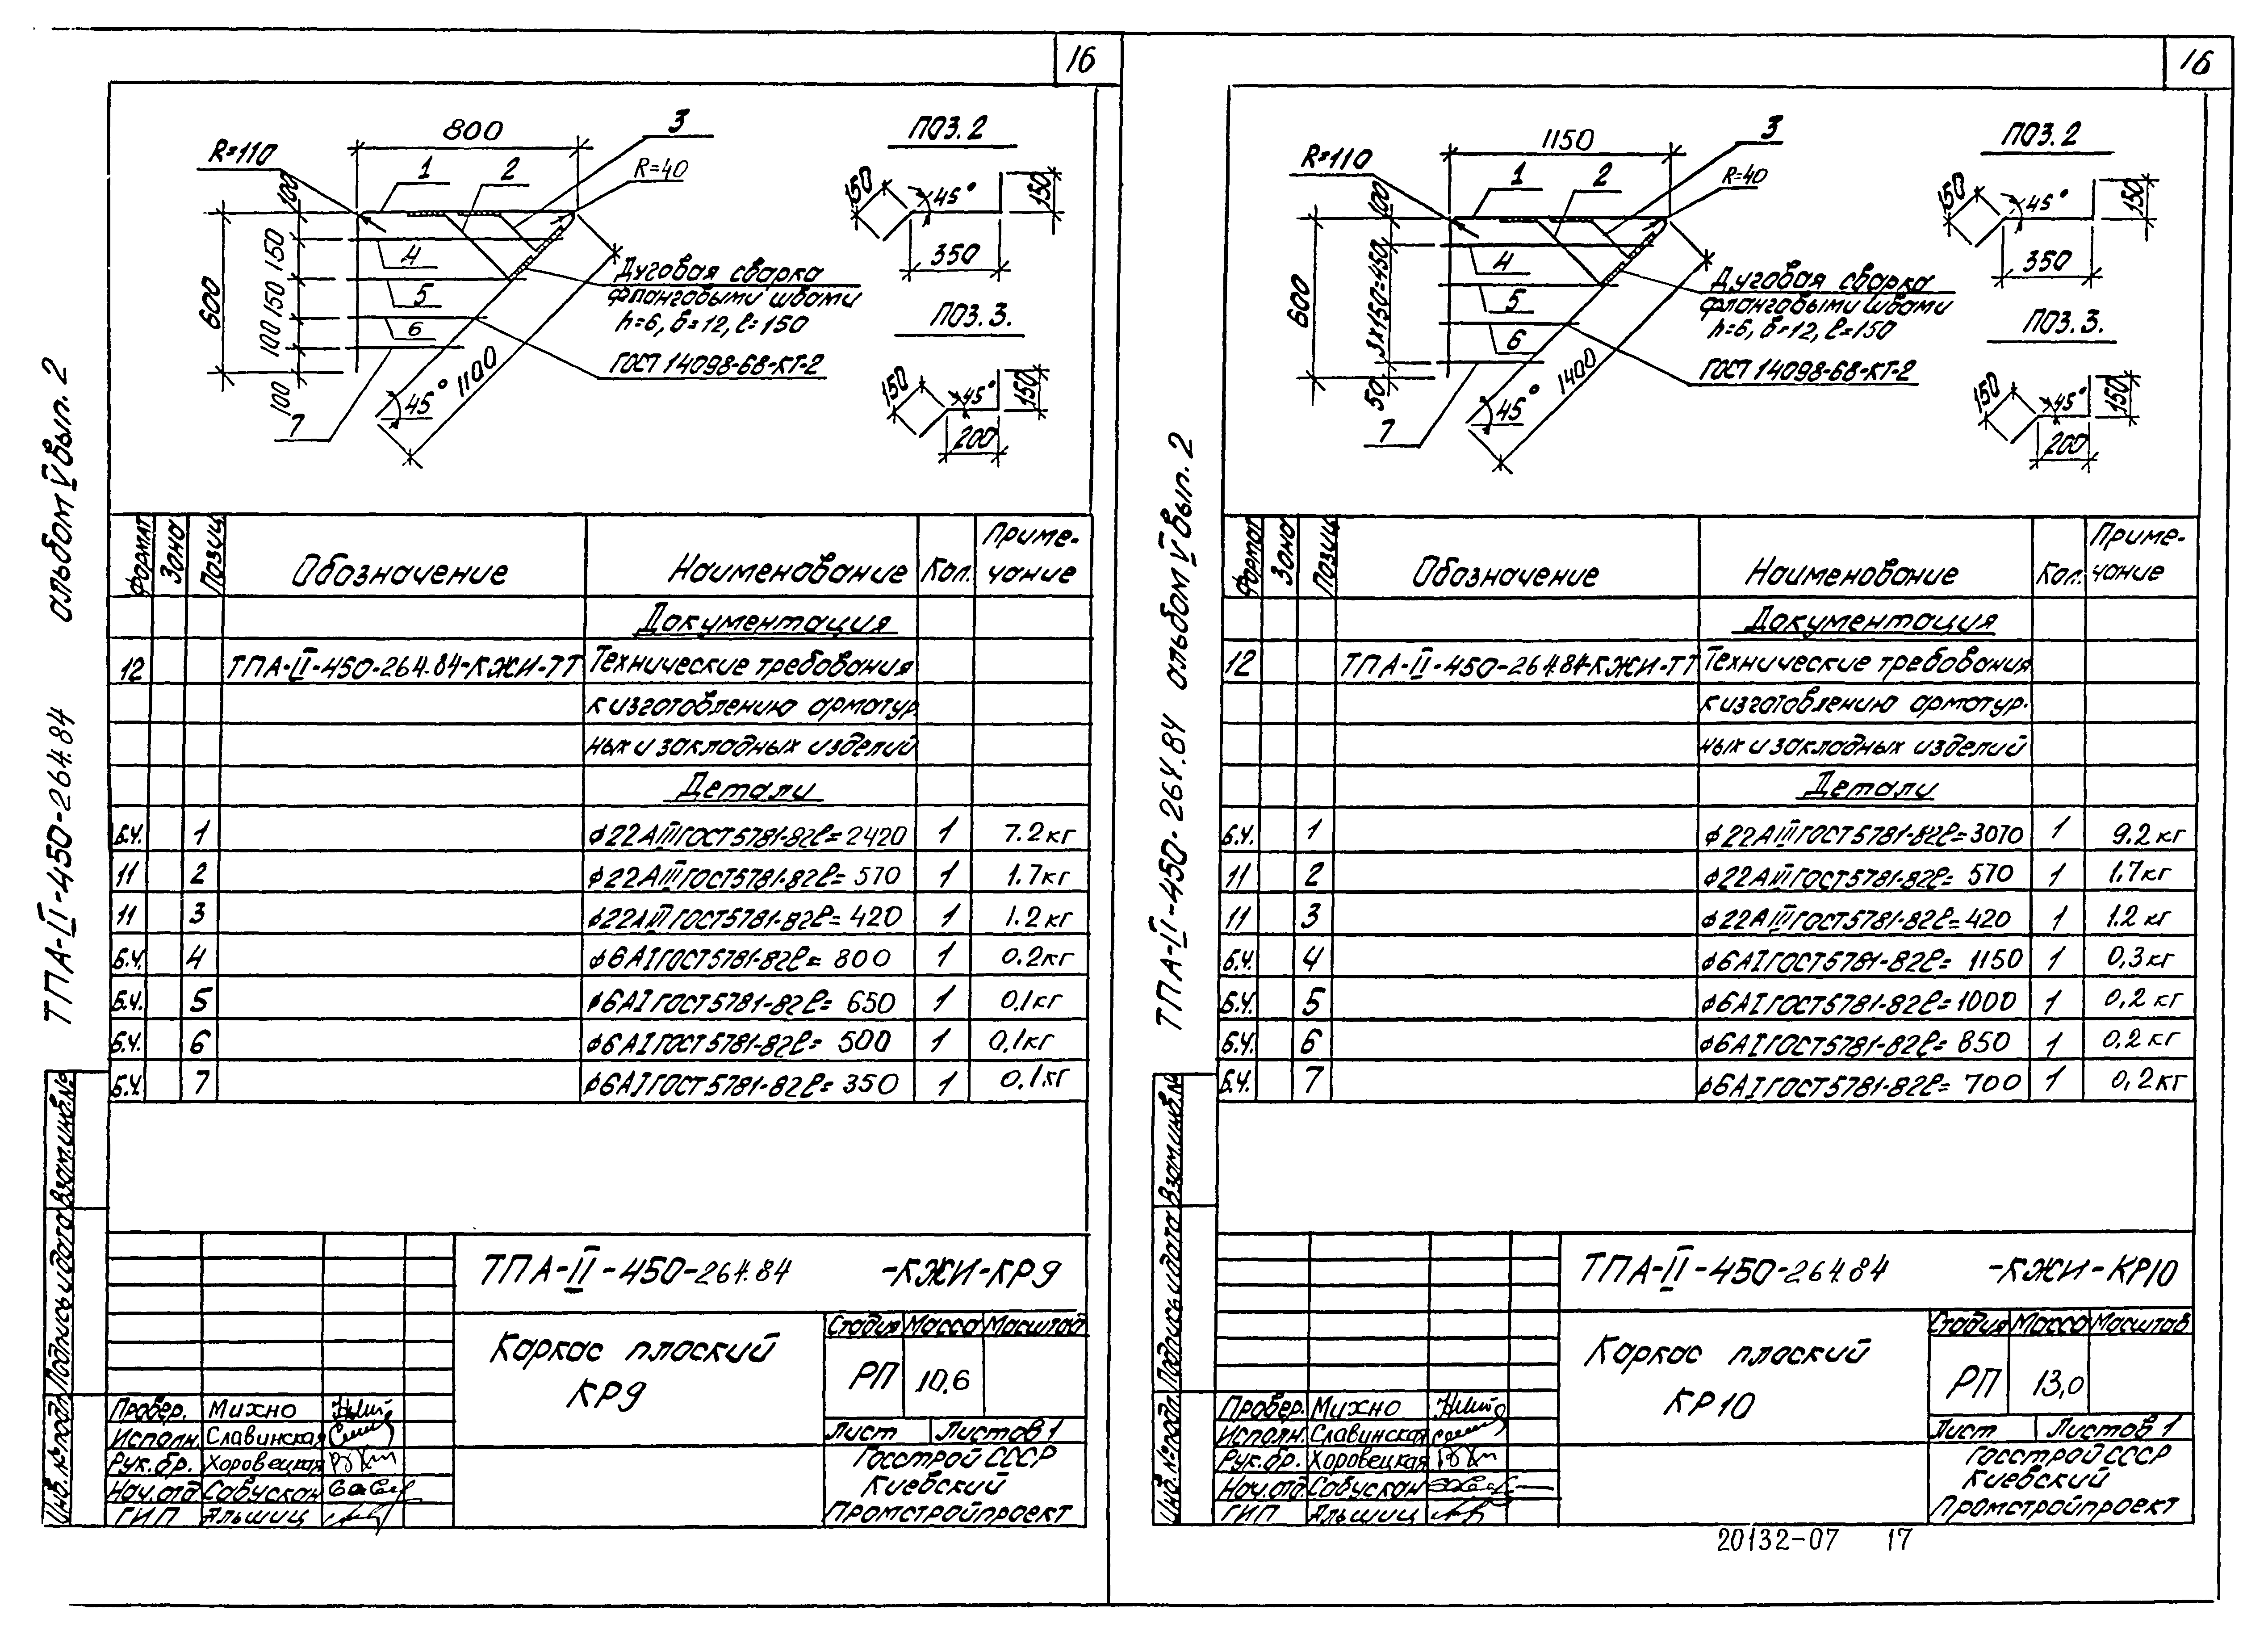 16
800
3
ПОЗ.2
R=110
1
2
R=40
100
150
45°
150
350
600
150
150
100
100
4
5
6
7
Дуговая сварка
фланговыми швами
h=6, в=12, ℓ=150
ГОСТ 14098-68-КТ-2
45°
1100
ПОЗ.3.
150
45°
150
200
Формат
Зона
Позиц
Обозначение
Наименование
Кол.
Приме-
чание
Документация
12 ТПА-II-450-264.84-КЖИ-ТТ Технические требования
к изготовлению арматур
ных и закладных изделий
Детали
Б.Ч. 1 ф22АIII ГОСТ5781-82 ℓ=2420 1 7.2кг
11 2 ф22АIII ГОСТ5781-82 ℓ=570 1 1.7кг
11 3 ф22АIII ГОСТ5781-82 ℓ=420 1 1.2кг
Б.Ч. 4 ф6АI ГОСТ5781-82 ℓ=800 1 0.2кг
Б.Ч. 5 ф6АI ГОСТ5781-82 ℓ=650 1 0.1кг
Б.Ч. 6 ф6АI ГОСТ5781-82 ℓ=500 1 0.1кг
Б.Ч. 7 ф6АI ГОСТ5781-82 ℓ=350 1 0.1кг
ТПА-II-450-264.84 альбом V вып. 2
Инв.№подл. Подпись и дата Взам.инв.№
ТПА-II-450-264.84 -КЖИ-КР9
Каркас плоский
КР9
Стадия Масса Масштаб
РП 10,6
Лист Листов 1
Госстрой СССР
Киевский
Промстройпроект
Провер. Михно
Исполн. Славинская
Рук.бр. Хоровецкая
Нач.отд. Савускан
ГИП Альшиц
16
1150
3
ПОЗ.2
R=110
1
2
R=40
100
150
45°
150
350
600
3х150=450
50
4
5
6
7
Дуговая сварка
фланговыми швами
h=6, в=12, ℓ=150
ГОСТ 14098-68-КТ-2
45°
1400
ПОЗ.3.
150
45°
150
200
Формат
Зона
Позиц
Обозначение
Наименование
Кол.
Приме-
чание
Документация
12 ТПА-II-450-264.84-КЖИ-ТТ Технические требования
к изготовлению арматур-
ных и закладных изделий
Детали
Б.Ч. 1 ф22АIII ГОСТ5781-82 ℓ=3070 1 9.2кг
11 2 ф22АIII ГОСТ5781-82 ℓ=570 1 1.7кг
11 3 ф22АIII ГОСТ5781-82 ℓ=420 1 1.2кг
Б.Ч. 4 ф6АI ГОСТ5781-82 ℓ=1150 1 0,3кг
Б.Ч. 5 ф6АI ГОСТ5781-82 ℓ=1000 1 0,2кг
Б.Ч. 6 ф6АI ГОСТ5781-82 ℓ=850 1 0,2кг
Б.Ч. 7 ф6АI ГОСТ5781-82 ℓ=700 1 0,2кг
ТПА-II-450-264.84 альбом V вып. 2
Инв.№подл. Подпись и дата Взам.инв.№
ТПА-II-450-264.84 -КЖИ-КР10
Каркас плоский
КР10
Стадия Масса Масштаб
РП 13,0
Лист Листов 1
Госстрой СССР
Киевский
Промстройпроект
Провер. Михно
Исполн. Славинская
Рук.бр. Хоровецкая
Нач.отд. Савускан
ГИП Альшиц
20132-07 17